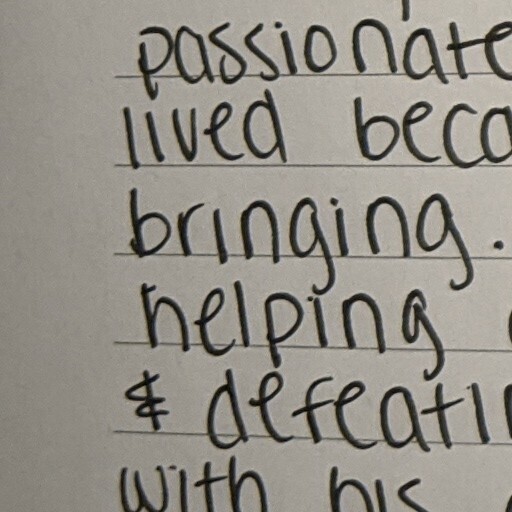 passionate
lived beca
bringing.
helping
& defeatin
with his